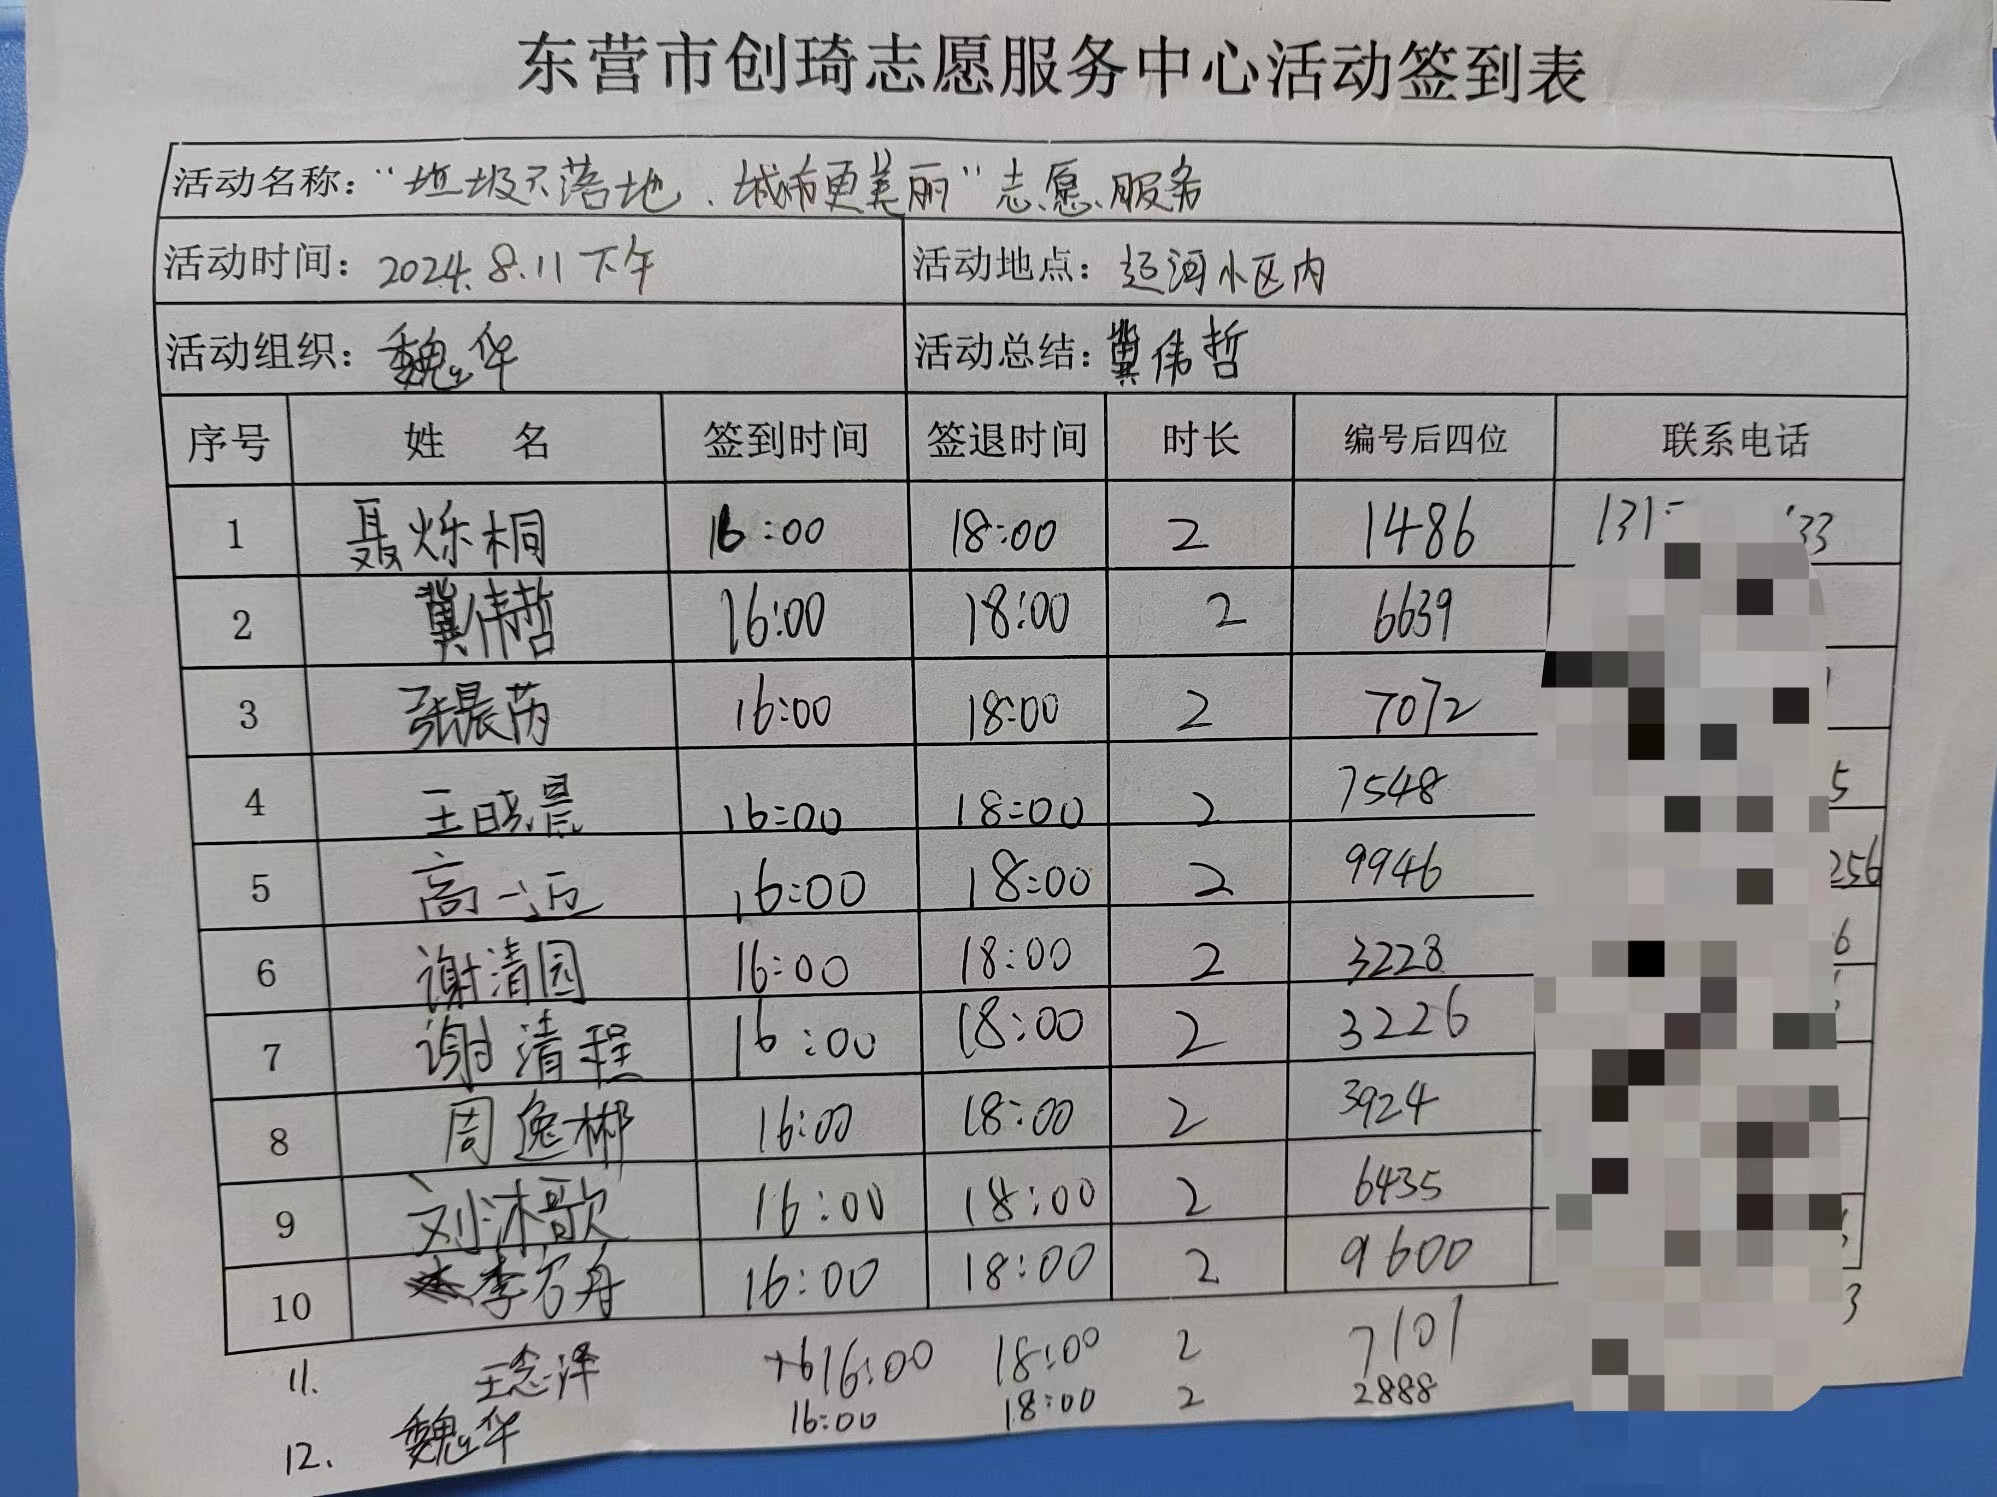 东营市创琦志愿服务中心活动签到表
活动名称：“垃圾不落地、城市更美丽”志愿服务
活动时间：2024.8.11下午 活动地点：运河小区内
活动组织：魏华 活动总结：冀伟哲
序号 姓 名 签到时间 签退时间 时长 编号后四位 联系电话
1 聂烁桐 16:00 18:00 2 1486 131 33
2 冀伟哲 16:00 18:00 2 6639
3 张晨芮 16:00 18:00 2 7072
4 王晓晨 16:00 18:00 2 7548 5
5 高一迈 16:00 18:00 2 9946 256
6 谢清园 16:00 18:00 2 3228 6
7 谢清程 16:00 18:00 2 3226
8 周逸彬 16:00 18:00 2 3924
9 刘沐歌 16:00 18:00 2 6435
10 李名舟 16:00 18:00 2 9600
11. 王念泽 16:00 18:00 2 7101 3
12. 魏华 16:00 18:00 2 2888